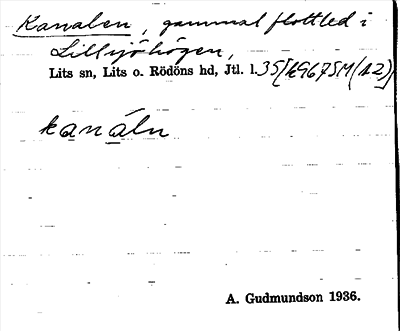 Kanalen, gammal flottled i
Lillsjöhögen,
Lits sn, Lits o. Rödöns hd, Jtl. l.35
kanáln
A. Gudmundson 1936.